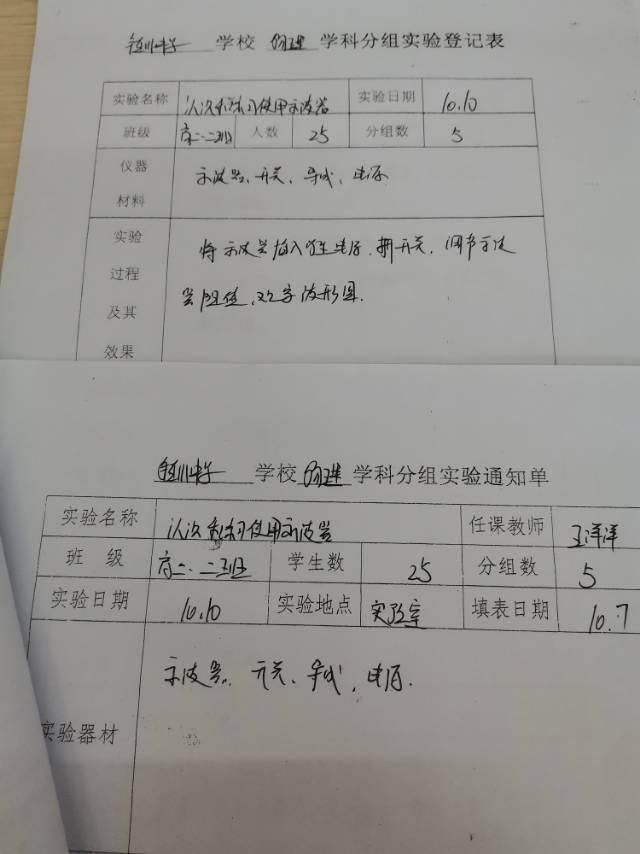 学校 物理 学科分组实验登记表
实验名称 认识和练习使用示波器 实验日期 10.10
班级 高二.二班 人数 25 分组数 5
仪器
材料
示波器、开关、导线、电源
实验
过程
及其
效果
将示波器插入学生电源,开关,调节示波
器阻值,观察波形图.
学校 物理 学科分组实验通知单
实验名称 认识和练习使用示波器 任课教师 王洋洋
班 级 高二.二班 学生数 25 分组数 5
实验日期 10.10 实验地点 实验室 填表日期 10.7
实验器材 示波器、开关、导线、电源.